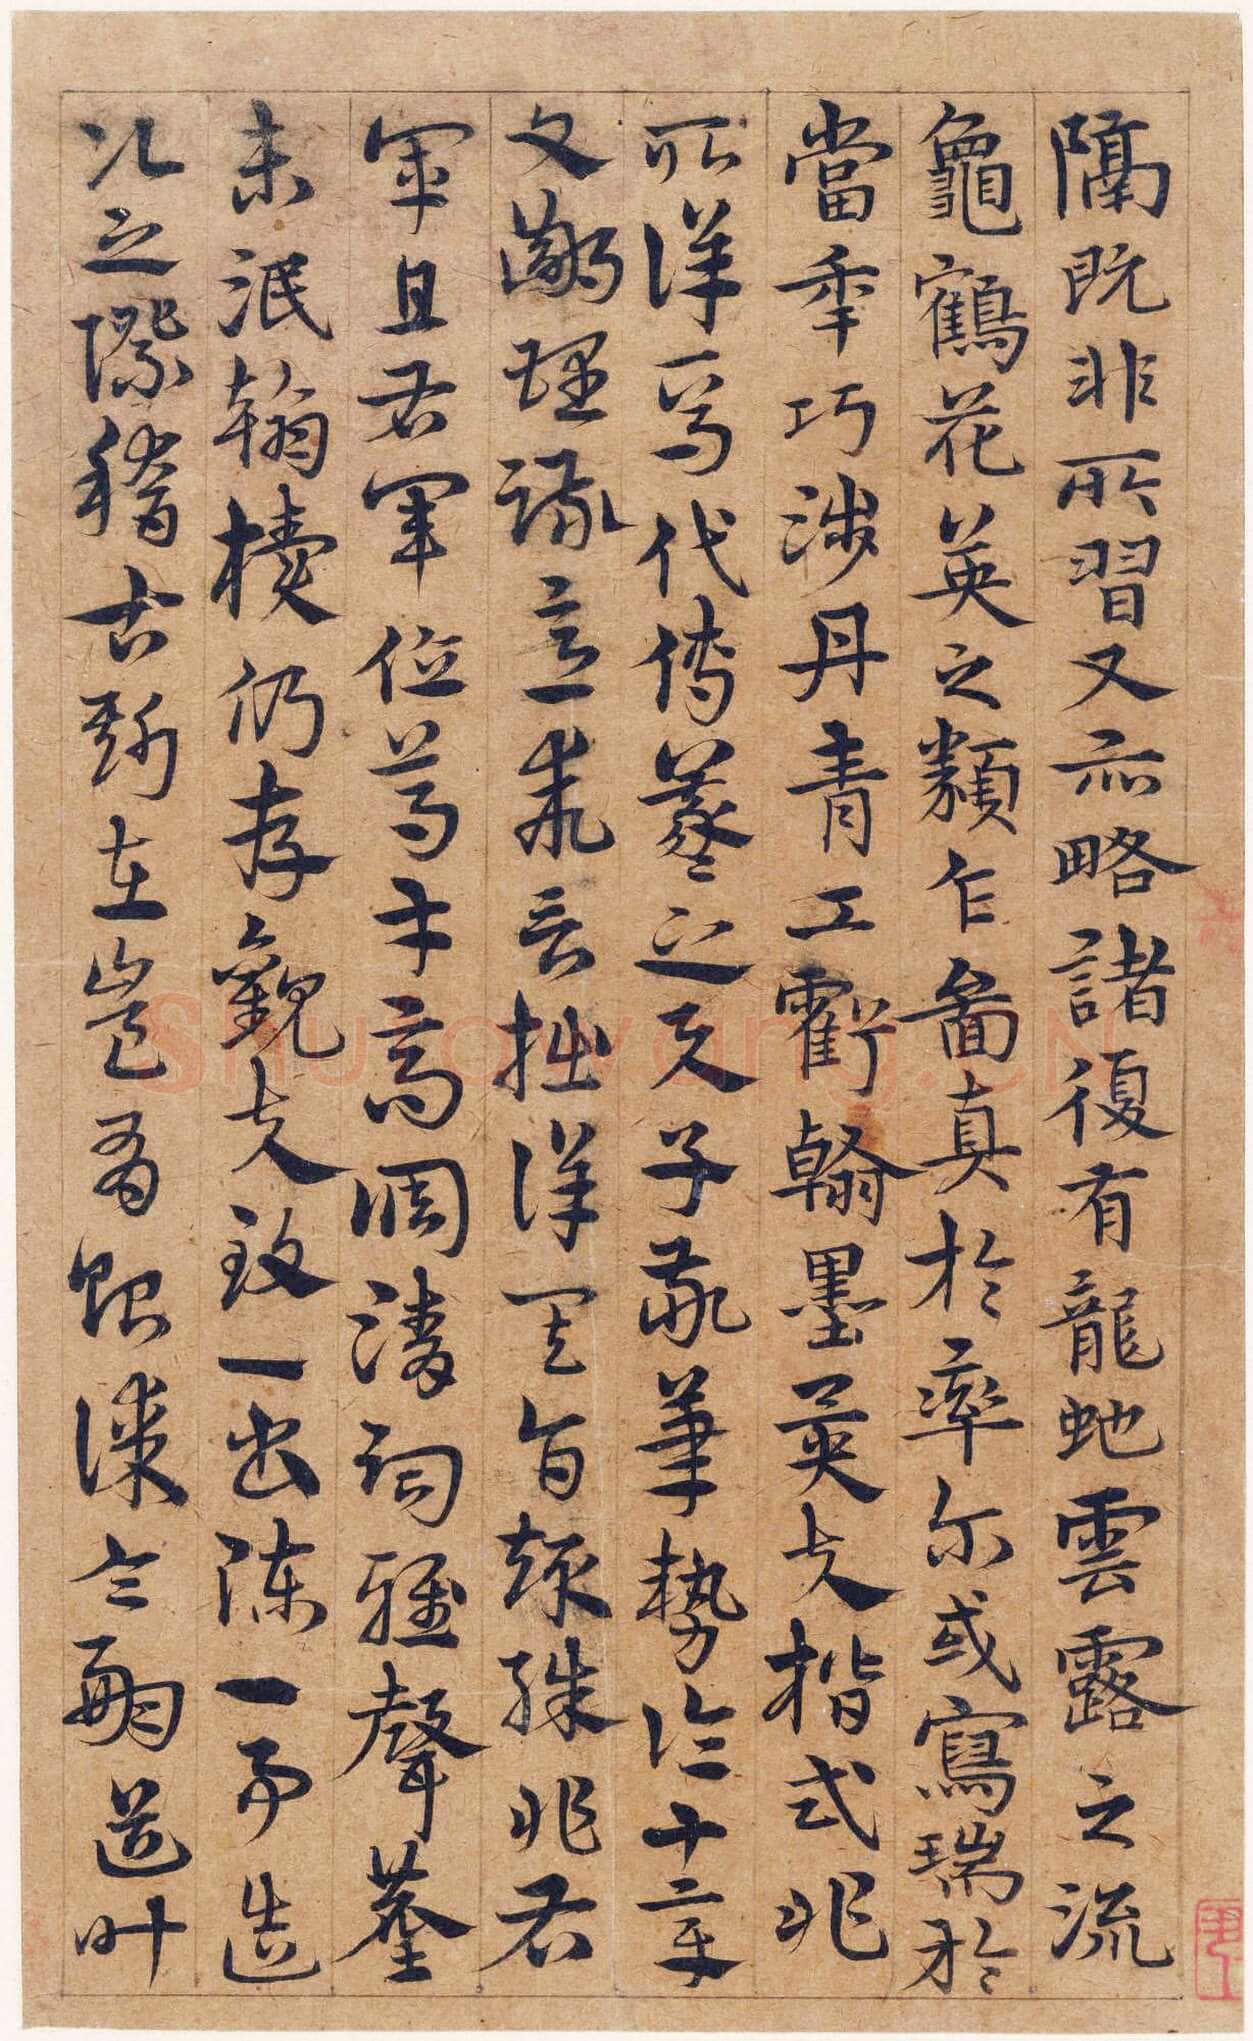 隔既非所習又亦略諸復有龍虵雲露之流
龜鶴花英之類乍啚真於率尔或寫瑞於
當年巧涉丹青工虧翰墨異夫楷式非
所詳焉代傳羲之與子敬筆勢論十章
文鄙理疎意乖言拙詳其旨趣殊非右
軍且右軍位重才高調清詞雅聲塵
未泯翰牘仍存觀夫致一書陳一事造
次之際稽古斯在豈有貽謀令嗣道叶